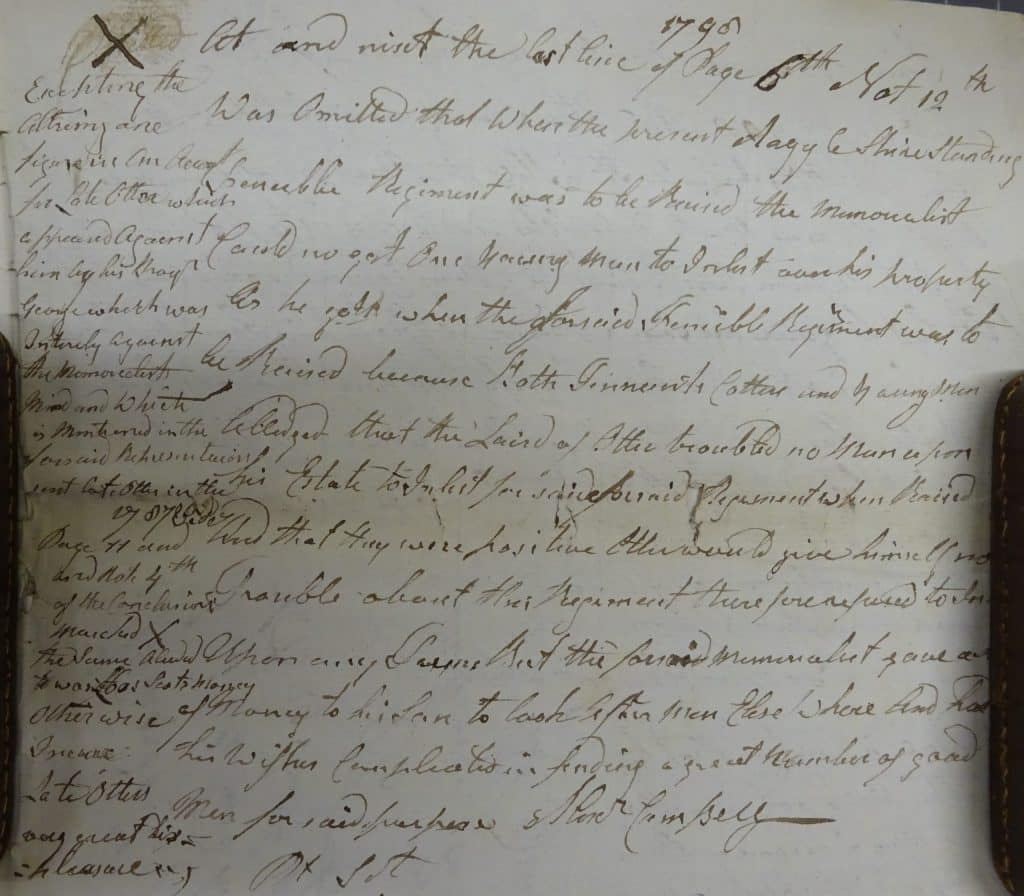 1798
At and next the last line of Page 6th Not 12th
Was Omitted that when the present Argyle Shire Standing
Fencible Regiment was to be Raised the Memorialist
Could no get One Young Man to Inlist over his property
As he gott when the forsaid Fencible Regiment was to
be Raised because Both Tennents Cottars and Young Men
Alledged that the Laird of Otter troubled no Man upon
his Estate to Inlist for said forsaid Regement when Raised
And that they were positive Otter would give himself no
Trouble about this Regiment therefore refused to In
Upon any But the forsaid Memorialist gave
of Money to his Son to look After Men Else Where And had
his Wishes Compleated in finding a great Number of good
Men for said purpose Alexr Campbell
Pt St
X
Excepting the
figure in An Accot
for Late Otter which
appeared Against
him by his Brayr
George which was
Intirely against
the Memorialists
Mind and Which
is Mentioned in the
forsaid Representation
sent Late Otter in the
1787 Vide
Page 11 and
and Note 4th
of the Conclusions
Marked X
the Same Aluded
to was Scots Money
Otherwise
Late Otters
very great dis-
-pleasure